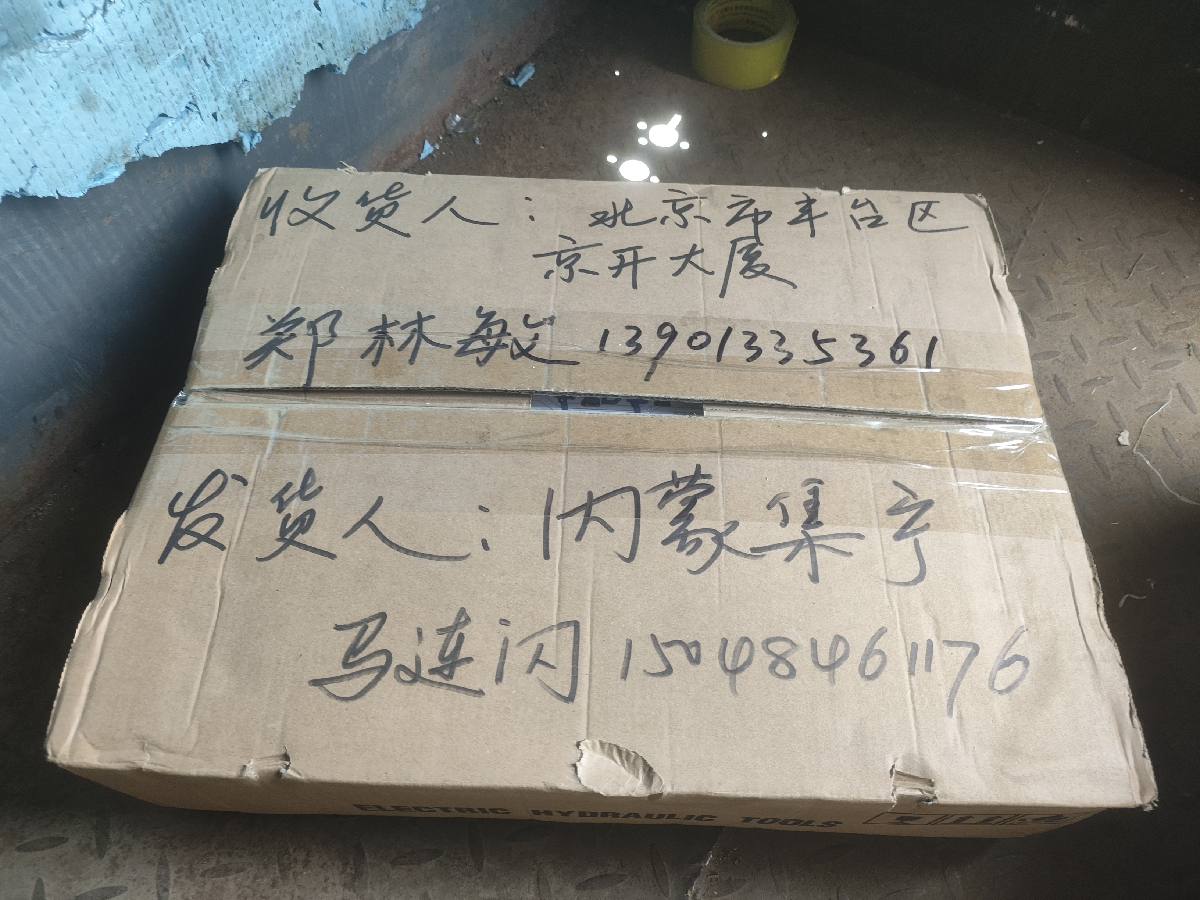 收货人：北京市丰台区
京开大厦
郑林敏 13901335361
发货人：内蒙集宁
马连闪 15048461176
ELECTRIC HYDRAULIC TOOLS